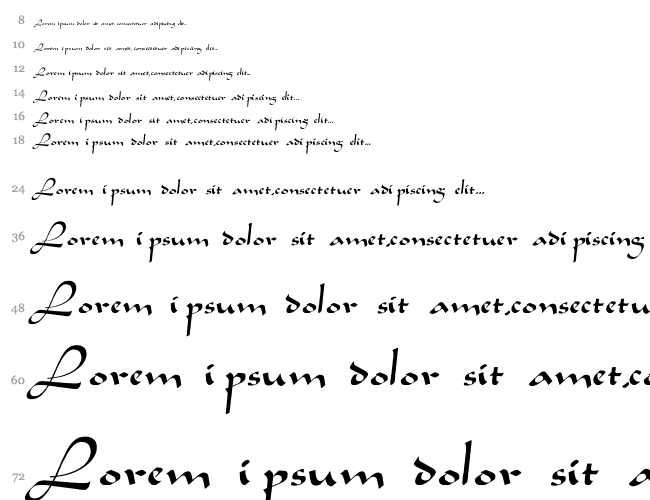 8 Lorem ipsum dolor sit amet,consectetuer adipiscing elit...
10 Lorem ipsum dolor sit amet,consectetuer adipiscing elit...
12 Lorem ipsum dolor sit amet,consectetuer adipiscing elit...
14 Lorem ipsum dolor sit amet,consectetuer adipiscing elit...
16 Lorem ipsum dolor sit amet,consectetuer adipiscing elit...
18 Lorem ipsum dolor sit amet,consectetuer adipiscing elit...
24 Lorem ipsum dolor sit amet,consectetuer adipiscing elit...
36 Lorem ipsum dolor sit amet,consectetuer adipiscing
48 Lorem ipsum dolor sit amet,consectetu
60 Lorem ipsum dolor sit amet,co
72 Lorem ipsum dolor sit a